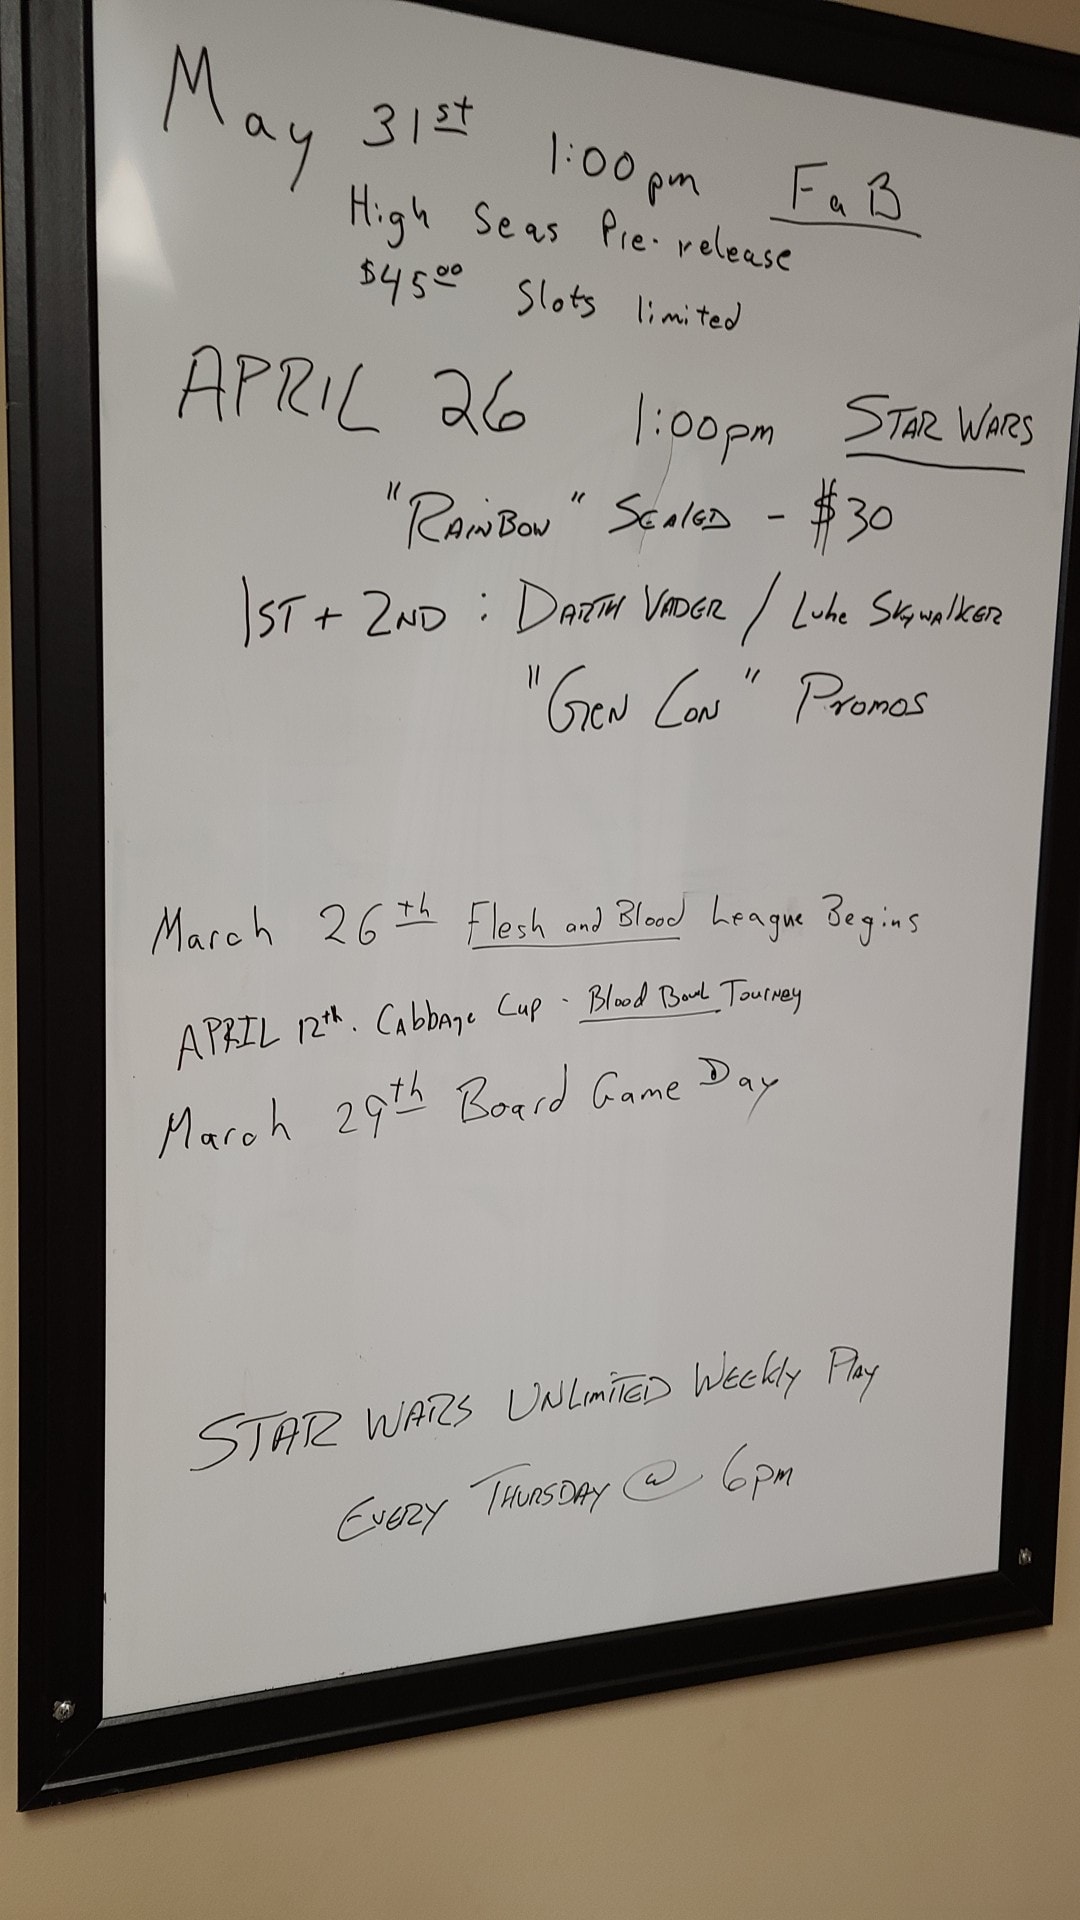 May 31st 1:00pm FaB
High Seas Pre-release
$45.00 Slots limited
APRIL 26 1:00pm STAR WARS
"RAINBOW" SEALED - $30
1ST + 2ND : DARTH VADER / Luke SkywALKER
"GEN CON" Promos
March 26th Flesh and Blood League Begins
APRIL 12th. CAbbAge Cup - Blood Bowl Tourney
March 29th Board Game Day
STAR WARS UNLIMITED WEEkly PlAy
EVERY THURSDAY @ 6pm